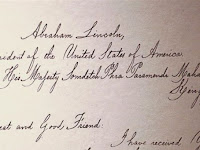 Abraham Lincoln,
sident of the United States of America
His Majesty Somdetch Phra Paramendr Maha
eat and Good Friend:
I have received